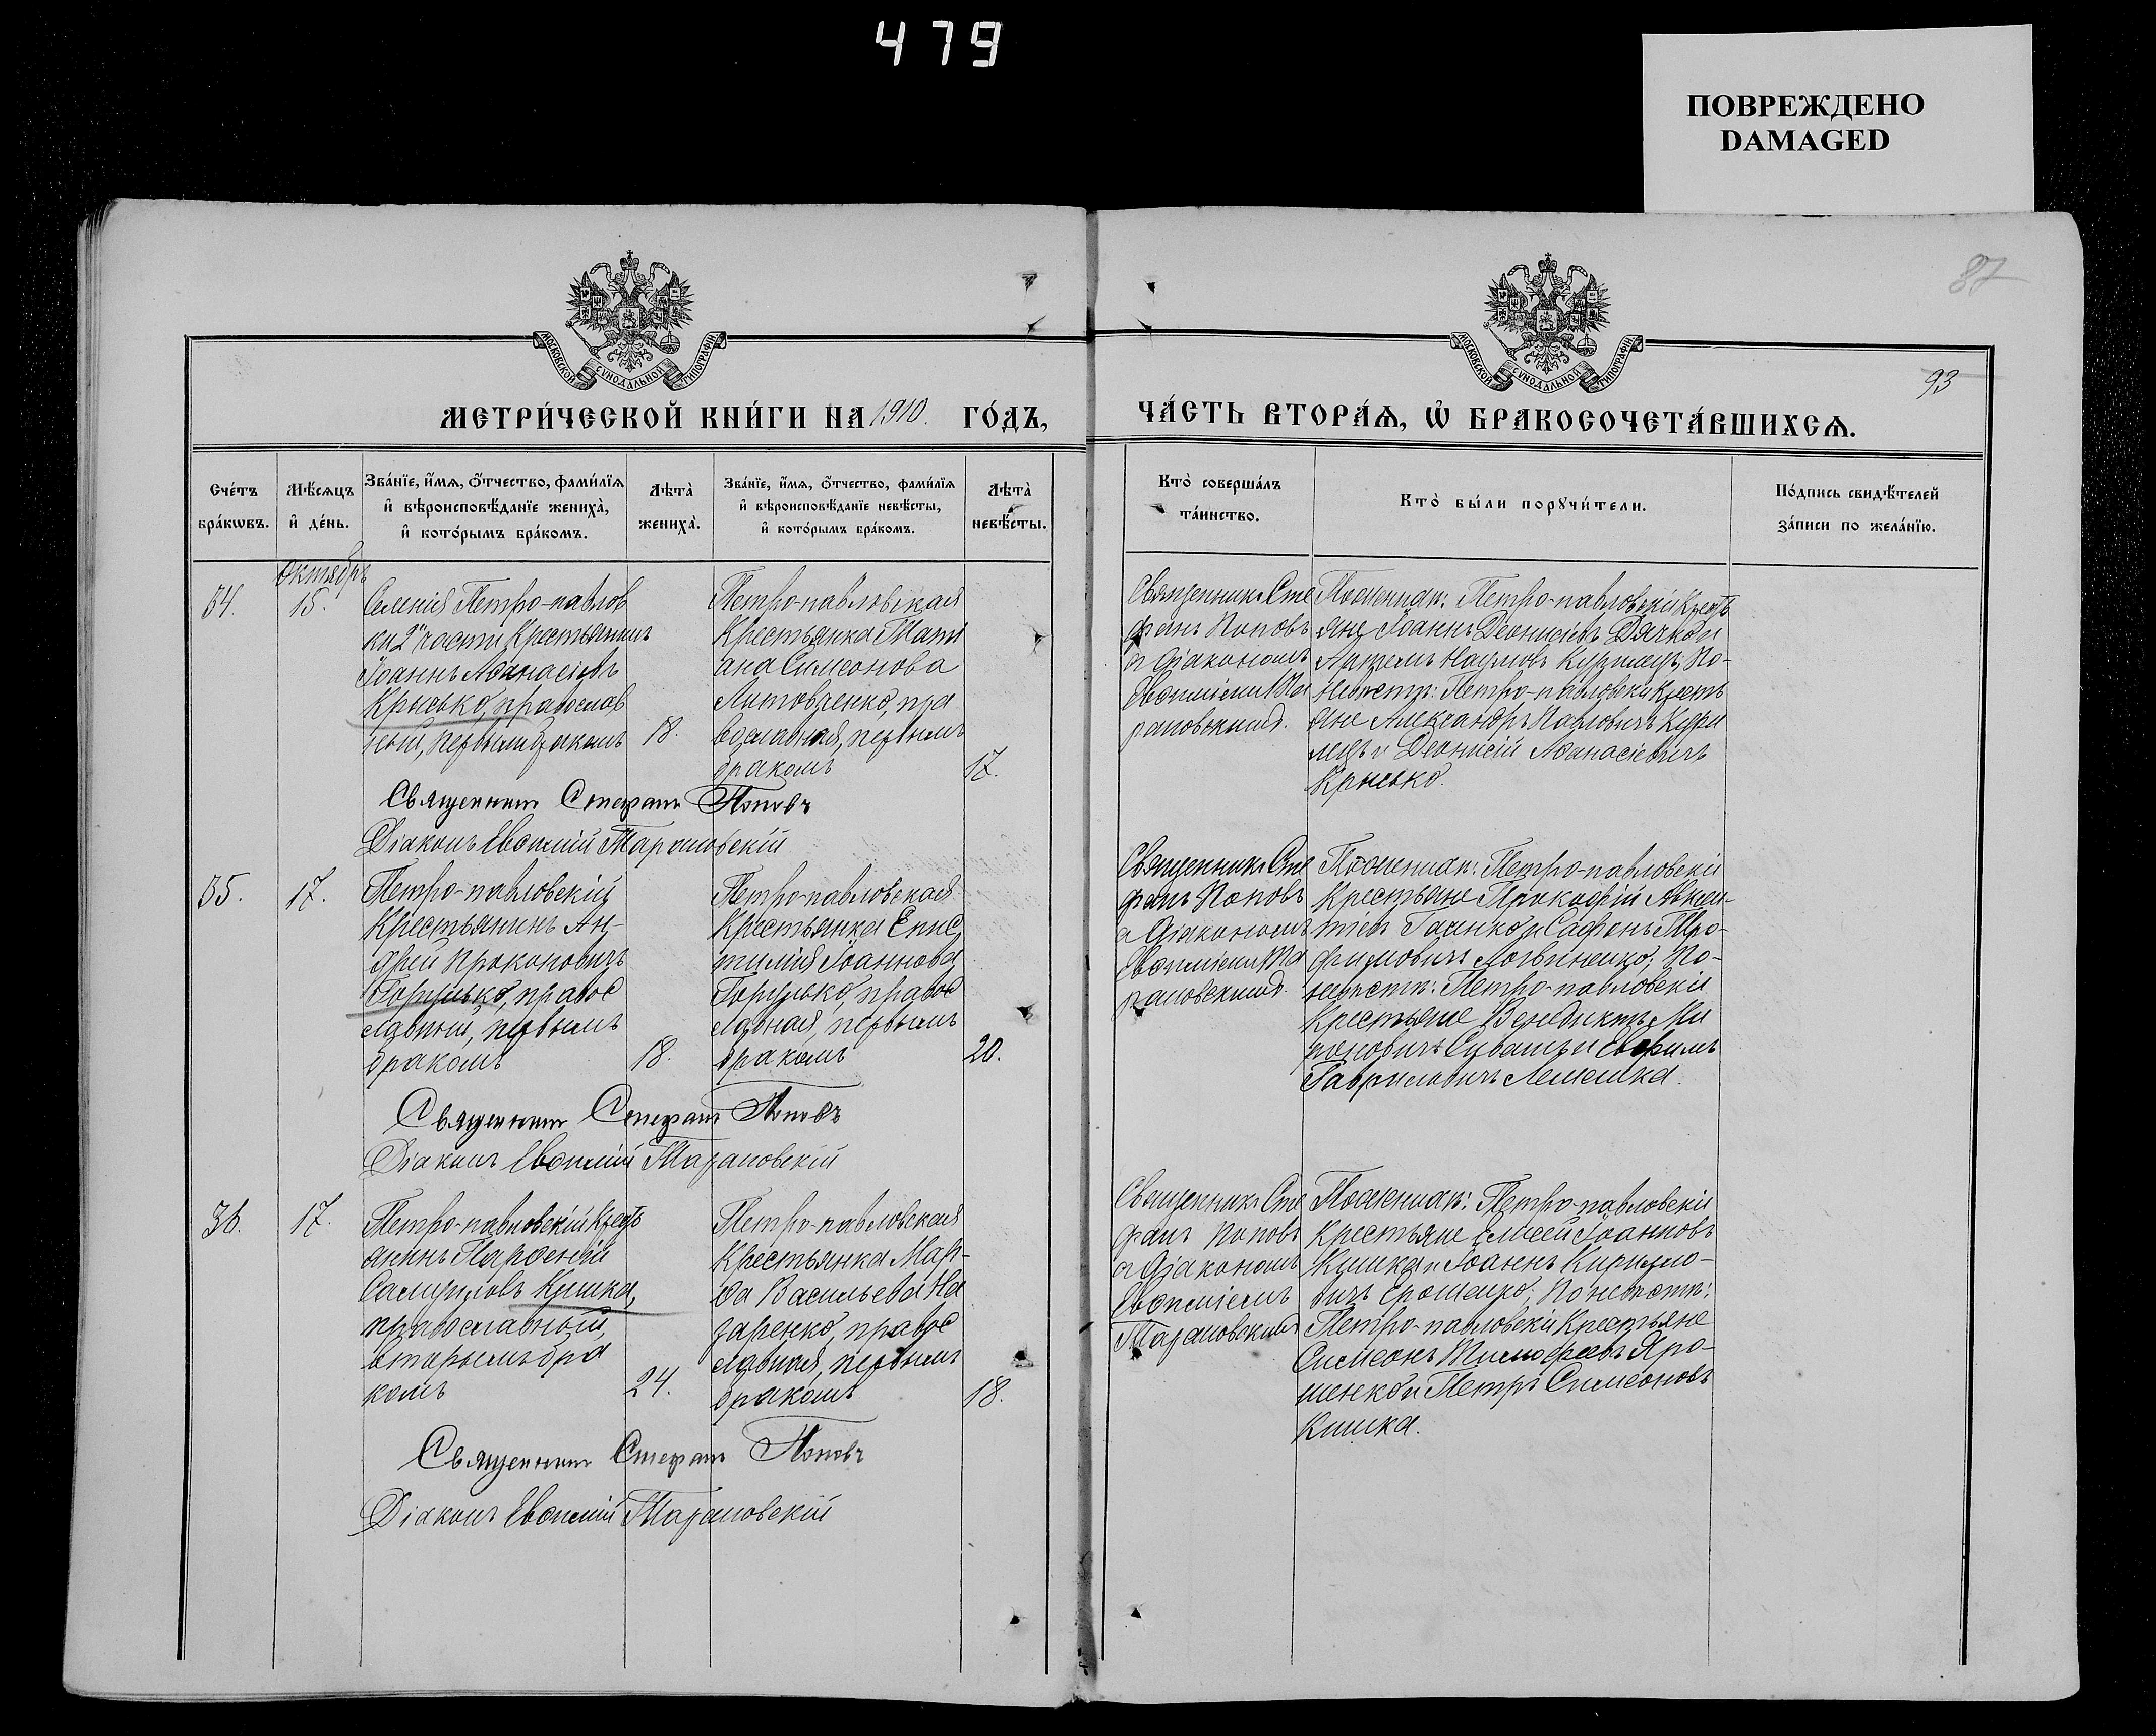 479
ПОВРЕЖДЕНО
DAMAGED
87
93
МОСКОВСКОЙ СѴНОДАЛЬНОЙ ТИПОГРАФІИ
МОСКОВСКОЙ СѴНОДАЛЬНОЙ ТИПОГРАФІИ
МЕТРИ́ЧЕСКОЙ КНИ́ГИ НА 1910. ГО́ДЪ,
ЧА́СТЬ ВТОРА́Ѧ, Ѡ҆ БРАКОСОЧЕТА́ВШИХСѦ.
Сче́тъ
бра́кѡвъ.
Мѣ́сѧцъ
и҆ де́нь.
Зва́нїе, и҆́мѧ, о҆́тчество, фами́лїѧ
и҆ вѣроисповѣ́данїе жениха̀,
и҆ кото́рымъ бра́комъ.
Лѣта̀
жениха̀.
Зва́нїе, и҆́мѧ, о҆́тчество, фами́лїѧ
и҆ вѣроисповѣ́данїе невѣ́сты,
и҆ кото́рымъ бра́комъ.
Лѣта̀
невѣ́сты.
Кто̀ соверша́лъ
та́инство.
Кто̀ бы́ли порꙋчи́тели.
По́дпись свидѣ́телей
за́писи по жела́нїю.
Октябрь
34.
15.
Селенія Петро-павлов
ки 2й части Крестьянинъ
Іоаннъ Аѳанасіевъ
Крысько, православ
ный, первымъ бракомъ
18.
Петро-павловская
Крестьянка Тати
ана Симеонова
Литовченко, пра
вославная, первымъ
бракомъ
17.
Священникъ Сте
фанъ Поповъ
съ Діакономъ
Евѳиміемъ Та
рановскимъ.
По женихѣ: Петро-павловскіи Кресть
яне Іоаннъ Діонисіевъ Дячко и
Наумовъ По
невѣстѣ: Петро-павловскіи Кресть
яне Александръ Павловичъ
и Діонисій Аѳанасіевичъ
Крысько.
Священникъ Стефанъ Поповъ
Діаконъ Евѳимій Тарановскій
35.
17.
Петро-павловскій
Крестьянинъ Ан-
дрей Прокоповичъ
правос
лавный, первымъ
бракомъ
18.
Петро-павловская
Крестьянка Епис
тимія Іоаннова
правос
лавная, первымъ
бракомъ
20.
Священникъ Сте
фанъ Поповъ
съ Діакономъ
Евѳиміемъ Та
рановскимъ.
По женихѣ: Петро-павловскіи
Крестьяне Прокофій Авксен-
тіевъ и Сафонъ Тро-
фимовичъ Логвиненко; По-
невѣстѣ: Петро-павловскіи
Крестьяне Венедиктъ Ми
роновичъ и Ефимъ
Гавриловичъ Лемешка.
Священникъ Стефанъ Поповъ
Діаконъ Евѳимій Тарановскій
36.
17.
Петро-павловскій Кресть
янинъ Парѳеній
Самуиловъ Кишка,
православный,
вторымъ бра
комъ
24.
Петро-павловская
Крестьянка Мар-
ѳа Васильева На
заренко, правос
лавная, первымъ
бракомъ
18.
Священникъ Сте
фанъ Поповъ
съ Діакономъ
Евѳиміемъ
Тарановскимъ
По женихѣ: Петро-павловскіи
Крестьяне Елисей Іоанновъ
Кишка и Іоаннъ Кирилло-
вичъ Ерошенко; По невѣстѣ:
Петро-павловскіи Крестьяне
Симеонъ Тимофеевъ Яро-
шенко и Петръ Симеоновъ
Кишка.
Священникъ Стефанъ Поповъ
Діаконъ Евѳимій Тарановскій